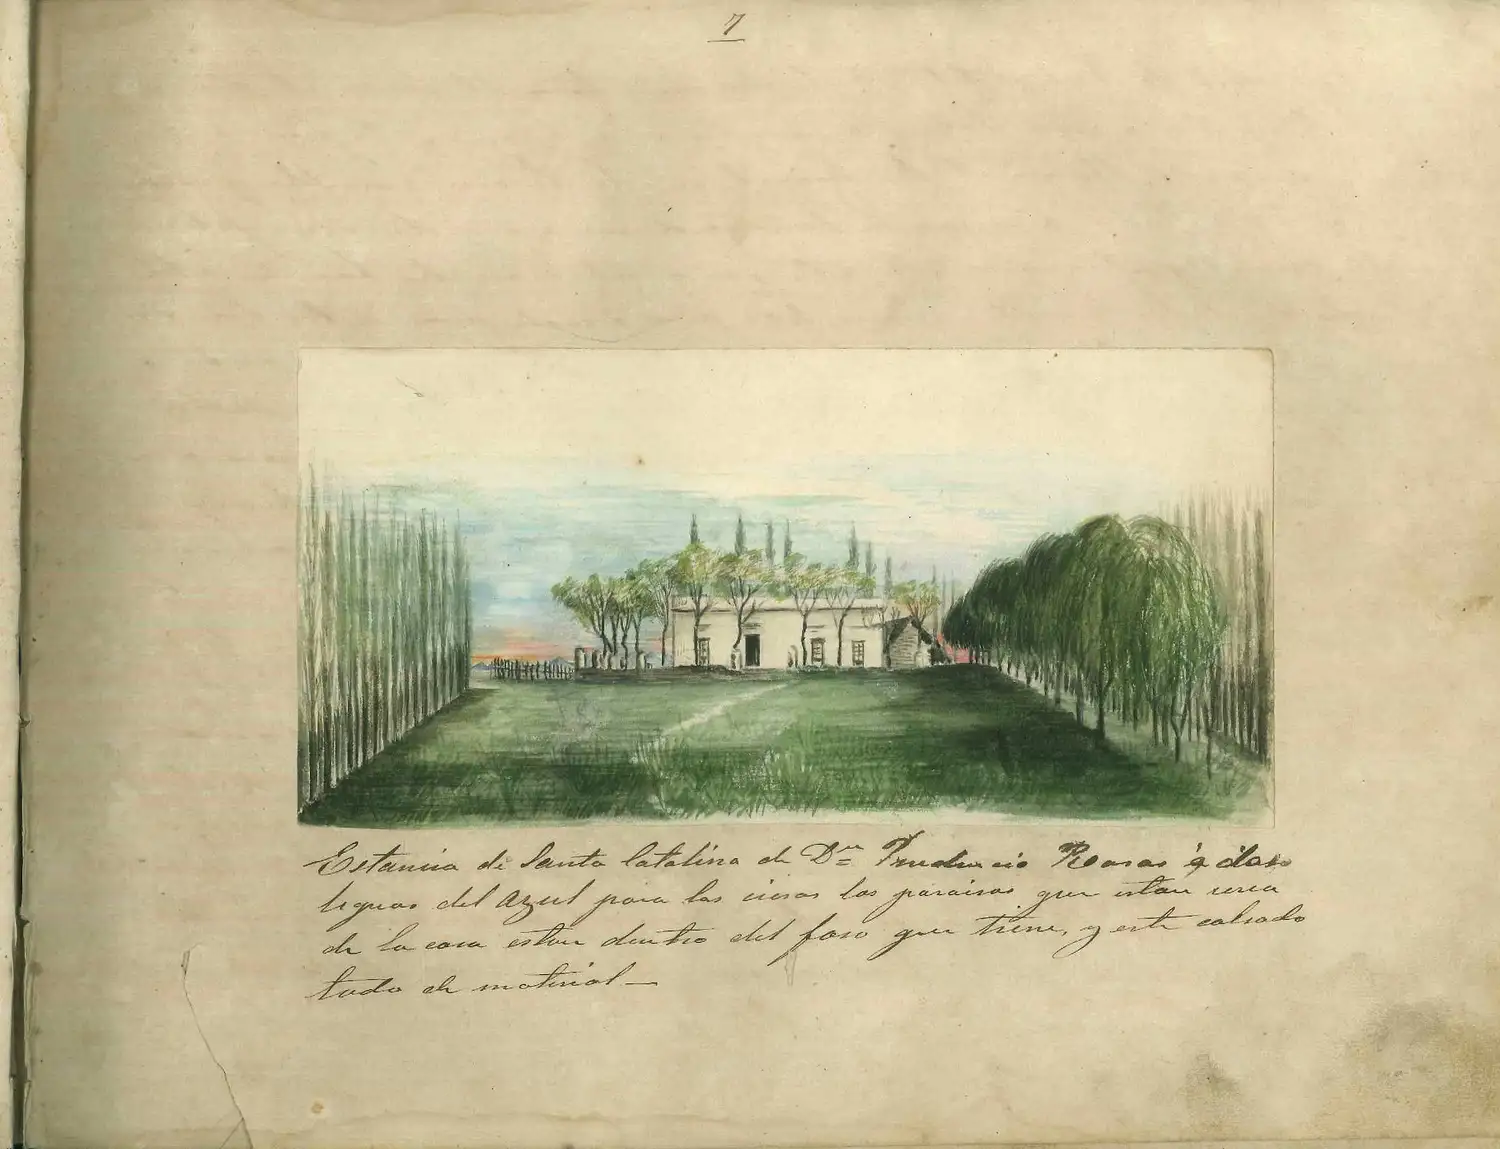 7
Estancia de Santa Catalina de Dn Prudencio Rosas á dos
leguas del Azul para las los paraisos que estan cerca
de la casa estan dentro del foso que tiene, y este calsado
todo de material —